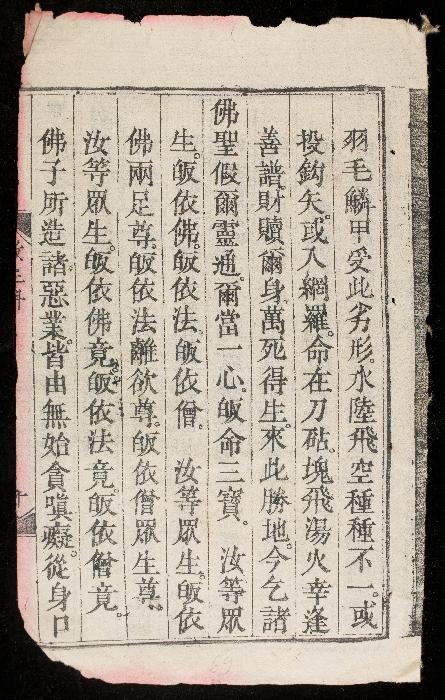 羽毛鱗甲受此劣形。水陸飛空種種不一。或
投鈎矢。或入網羅命在刀砧。魂飛湯火幸逢
善譜。財贖爾身。萬死得生。來此勝地。今乞諸
佛聖假爾靈通。爾當一心。皈命三寶。 汝等眾
生。皈依佛。皈依法。皈依僧。 汝等眾生。皈依
佛兩足尊。皈依法離欲尊。皈依僧眾生尊。
汝等眾生。皈依佛竟。皈依法竟。皈依僧竟。
佛子所造諸惡業。皆由無始貪嗔癡。從身口